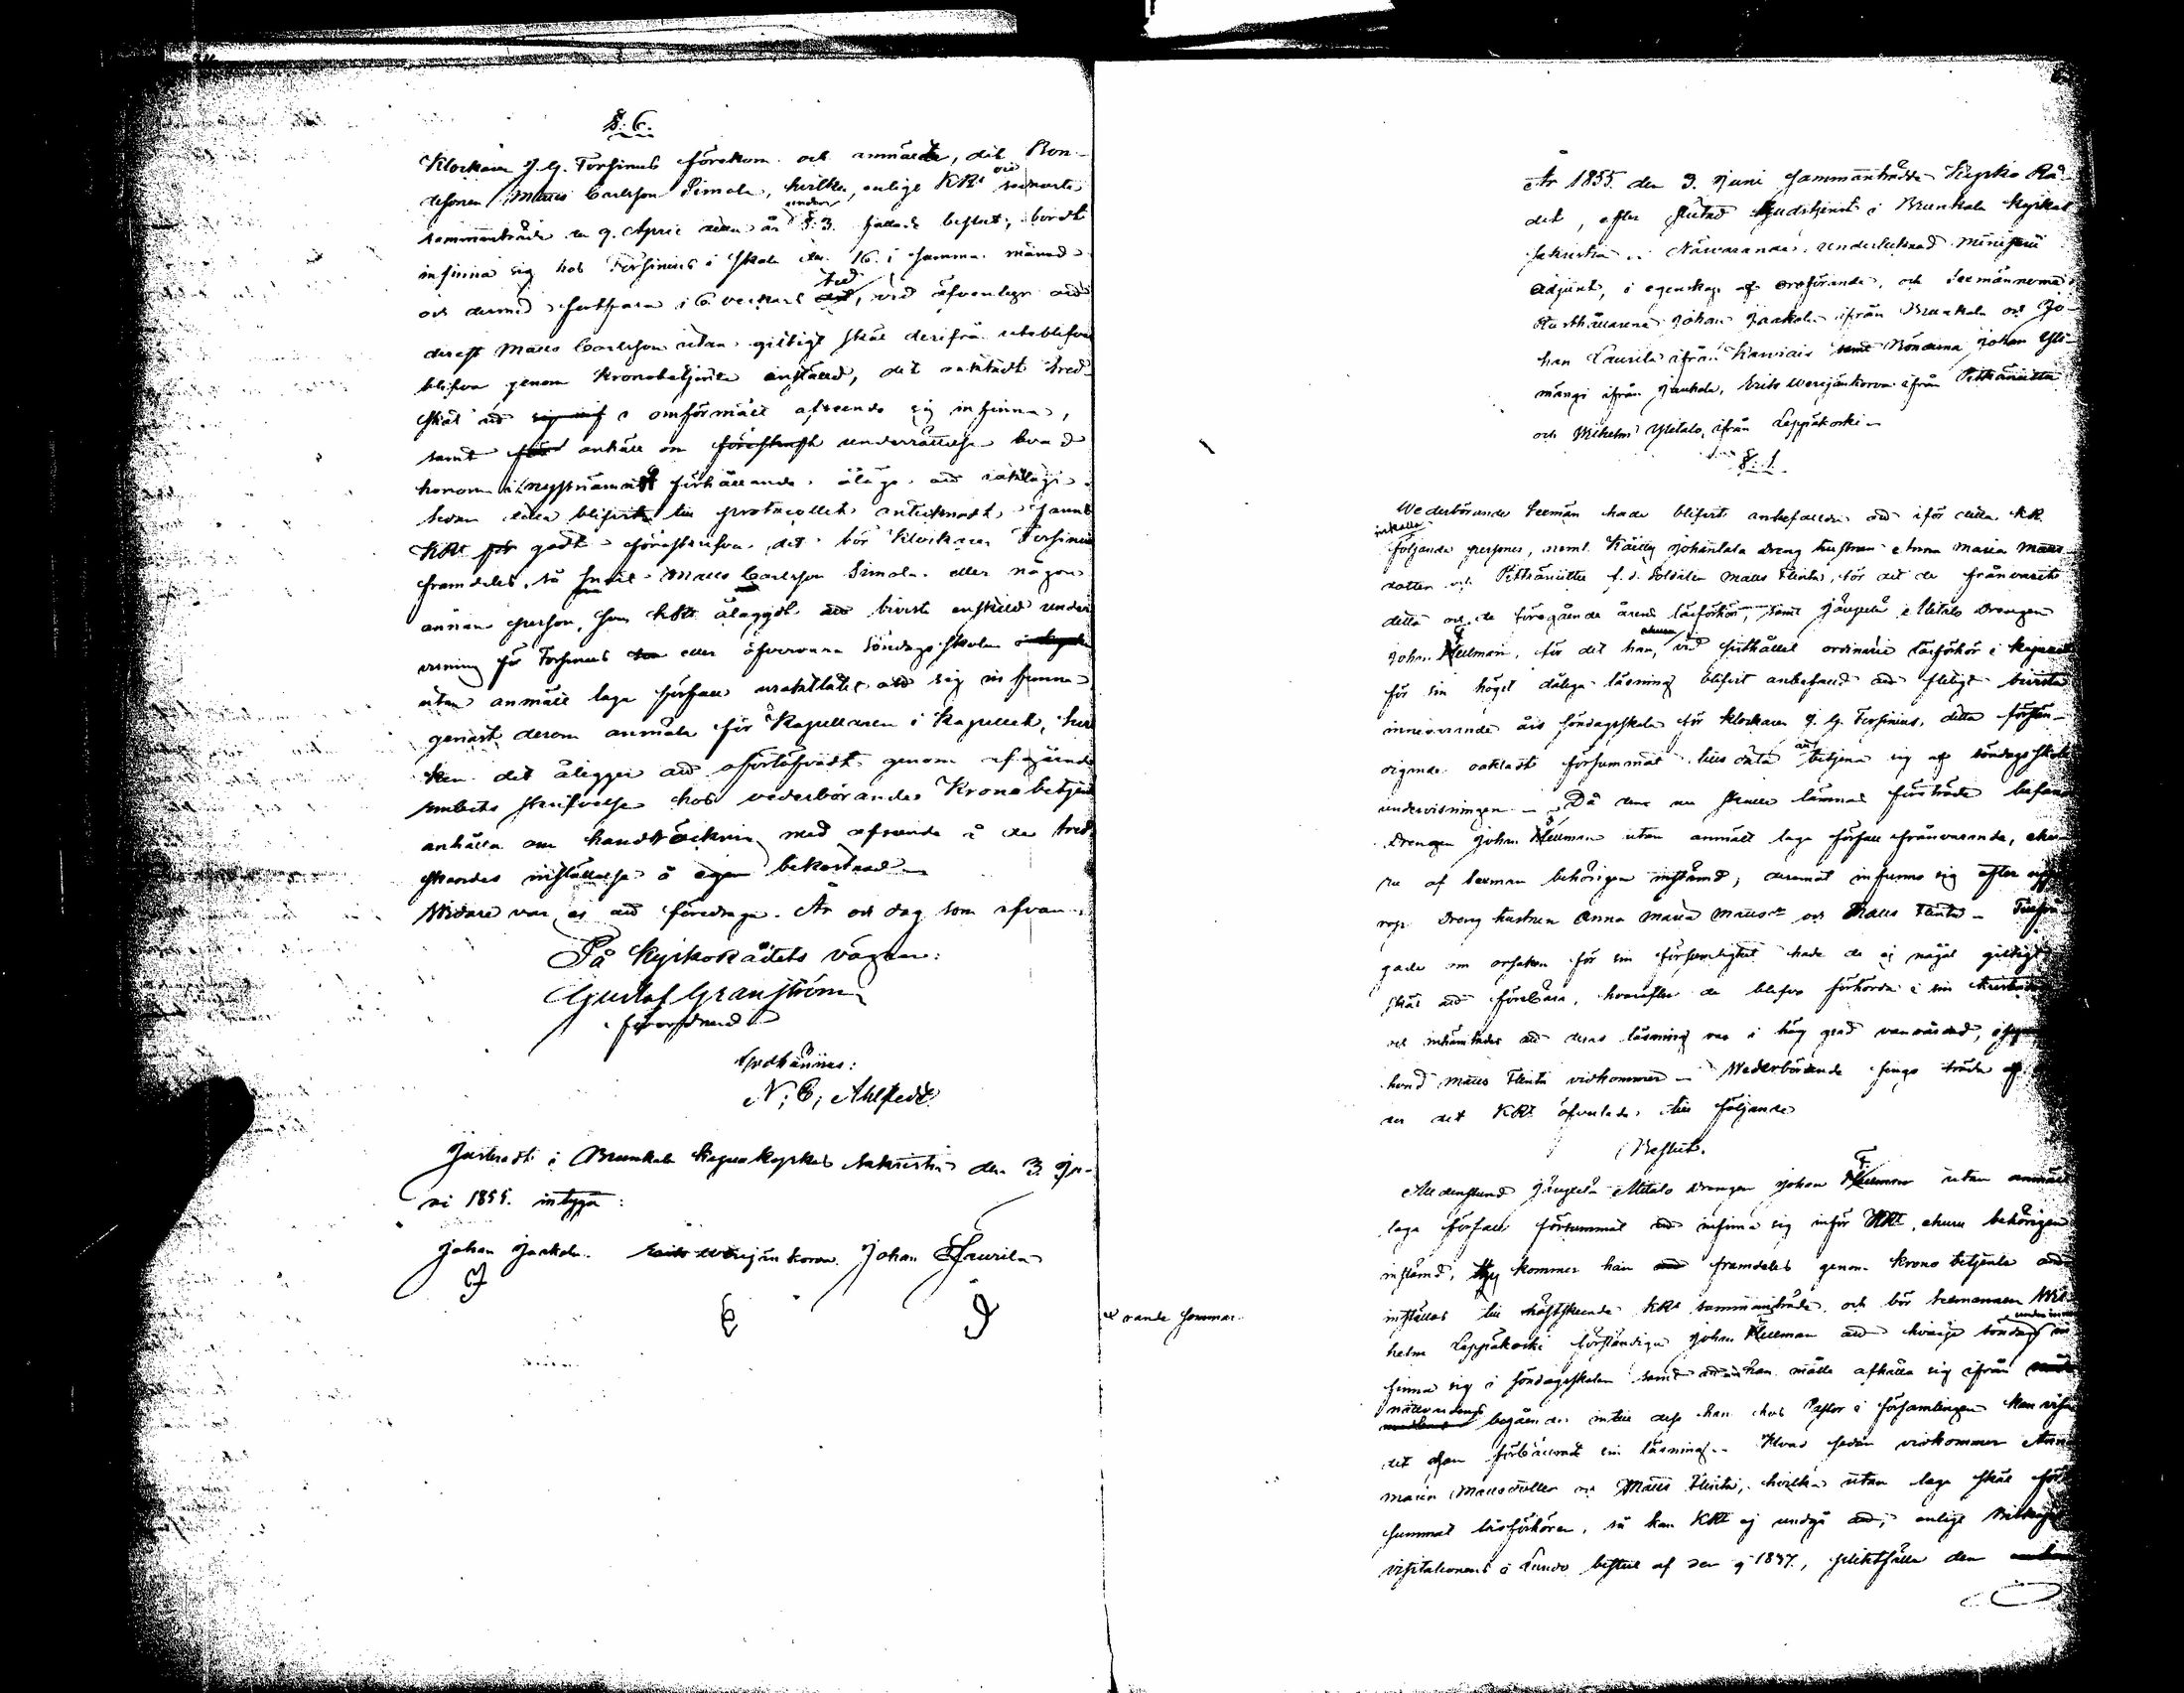 §. 6.
Klockaren J. G. Forsinus förekom och anmälte, det Bon-
desonen Matts Carlsson Simola, hvilken, enligt KRts vid sednaste
sammanträde den 9. April detta år under §. 3. fattade beslut, bordt
infinna sig hos Forsinus i skola den 16. i samma månad
och dermed fortfara i 6 veckors tid, vid äfventyr att
derest Matts Carlsson utan giltigt skäl derifrån uteblefve
blifva genom Kronobetjente instäld, det oaktadt tred-
skat att i omförmält afseende sig infinna,
samt anhöll om underrättelse hvad
honom i nyssnämndt förhållande ålåge att iakttaga.
Sedan detta blifvit till protocollet antecknadt, fann
KRt godt föreskrifva, det bör Klockaren Forsinus
framdeles, så snart Matts Carlsson Simola eller någon
annan person, som KRt ålaggdt att bivista enskild under
visning för Forsinus eller öfvervara Söndags skolan
utan anmält laga förfall uraktlåtit att sig infinna
genast derom anmäla för Kapellanen i Kapellet, hvil
ken det åligger att ofördröjdt genom afgående
embets skrifvelse hos vederbörande Kronobetjent
anhålla om handräckning med afseende å den tred
skandes inställelse å egen bekostnad
Vidare var ej att föredraga. År och dag som ofvan.
På Kyrkorådets vägnar:
Gustaf Granström
förordnad
Godkännes:
N; C; Ahlstedt
Justeradt i Brunkala Kapellkyrkas Sakristia den 3. Ju-
ni 1855. intyga:
Johan Jaakola. Erik Werjänkorva. Johan Laurila
rande sommar.
År 1855. den 3. Juni sammanträdde Kyrko Rå-
det, efter slutad Gudstjenst i Brunkala Kyrkas
sakristia. Närvarande: undertecknad Ministerii
Adjunct, i egenskap af ordförande, och Sexmännerna
Rusthållarena Johan Jaakola ifrån Brunkala och Jo-
han Laurila ifrån Karviais Bönderna Johan Yli-
mängi ifrån Jaukola, Erik Werjänkorva ifrån
och Wilhelm Ylitalo, ifrån Leppäkoski
§. 1.
Wederbörande Sexmän hade blifvit anbefallde att inför detta KR
inkalla
följande personer, neml. Käiky Johantala Dreng hustrun Anna Maria Matts
dotter och f. d. Soldaten Matts Flinta, för det de frånvarit
detta och de föregående årens läsförhör, samt Jängelä Ylitalo Drengen
Johan Fellman, för det han, ehuru vid sisthållet ordinarie läsförhör i Kapellet
för sin högst dåliga läsning blifvit anbefalld att flitigt bivista
innevarande års söndagsskola för Klockaren J. G. Forsinus, detta försum-
oaktadt försummat att betjena sig af söndags skole
undervisningen. Då desse nu skulle lämnas företräde befanns
Drengen Johan Fellman utan anmält laga förfall frånvarande, ehu
ru af Sexman behörigen instämd; deremot infunno sig efter upp
rop Dreng hustrun Anna Maria Mattsdr och Matts Flinta. Tillfrå-
gade om orsaken för sin försumlighet hade de ej något giltigt
skäl att förebära, hvarefter de blefvo förhörde i sin
och inhämtades att deras läsning var i hög grad vanvårdad,
hvad Matts Flinta vidkommer. Wederbörande fingo träda af
der det KRt afvunkade till följande
Beslut.
Alldenstund Jängelä Ylitalo Drengen Johan Fellman utan anmält
laga förfall försummat infinna sig inför KRt, ehuru behörigen
instämd, kommer han framdeles genom Krono betjente att
inställas till nästskeende KRts sammanträde, och bör Sexmannen Wil-
helm Leppäkoski förständiga Johan Fellman att hvarje söndag in
finna sig i söndagsskolan samt att han måtte afhålla sig ifrån
nattvardens begående intill dess han hos Pastor i församlingen kan visa
det han förbättradt sin läsning. Hvad sedan vidkommer Anna
Maria Mattsdotter och Matts Flinta, hvilka utan laga skäl för
summat läsförhören, så kan KRt ej undgå att, enligt Biskops
visitationens i Lundo beslut af den 9 1837., pliktfälla den